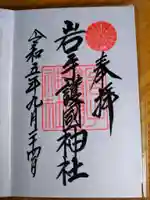 奉拝
岩手護國神社
令和五年九月二十四日